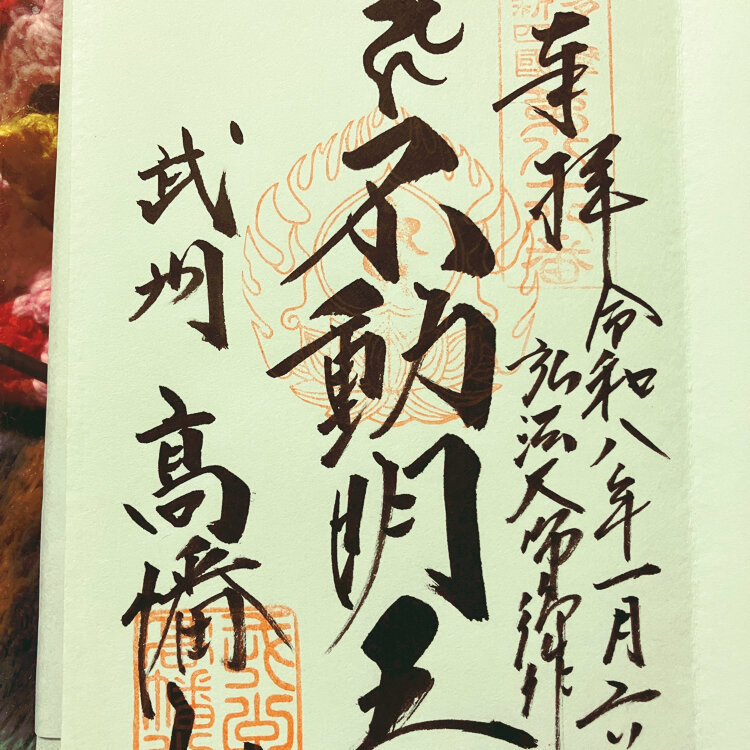 奉拝
令和八年一月二
弘法大師御作
不動明王
武州
高幡山